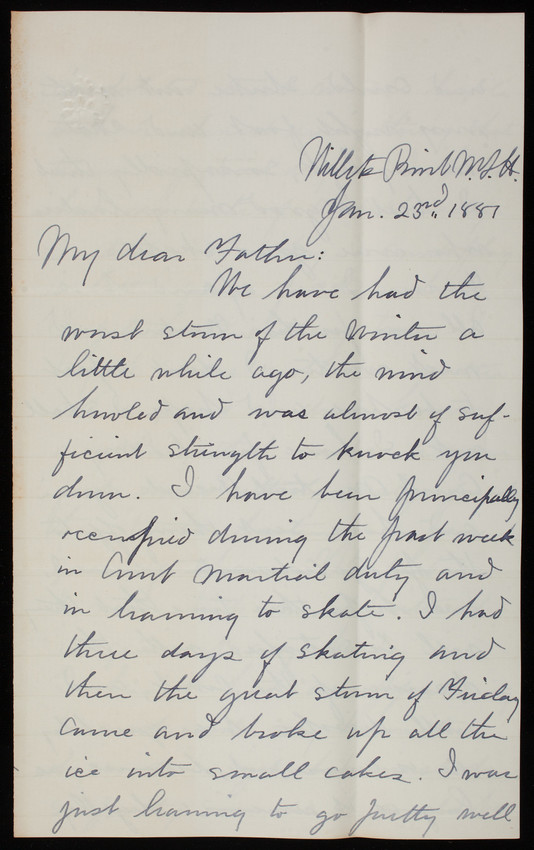 Willets Point N.Y.H.
Jan. 23rd, 1881
My dear Father:
We have had the
worst storm of the winter a
little while ago, the wind
howled and was almost of suf-
ficient strength to knock you
down. I have been principally
occupied during the past week
in Court Martial duty and
in learning to skate. I had
three days of skating and
then the great storm of Friday
came and broke up all the
ice into small cakes. I was
just learning to go pretty well